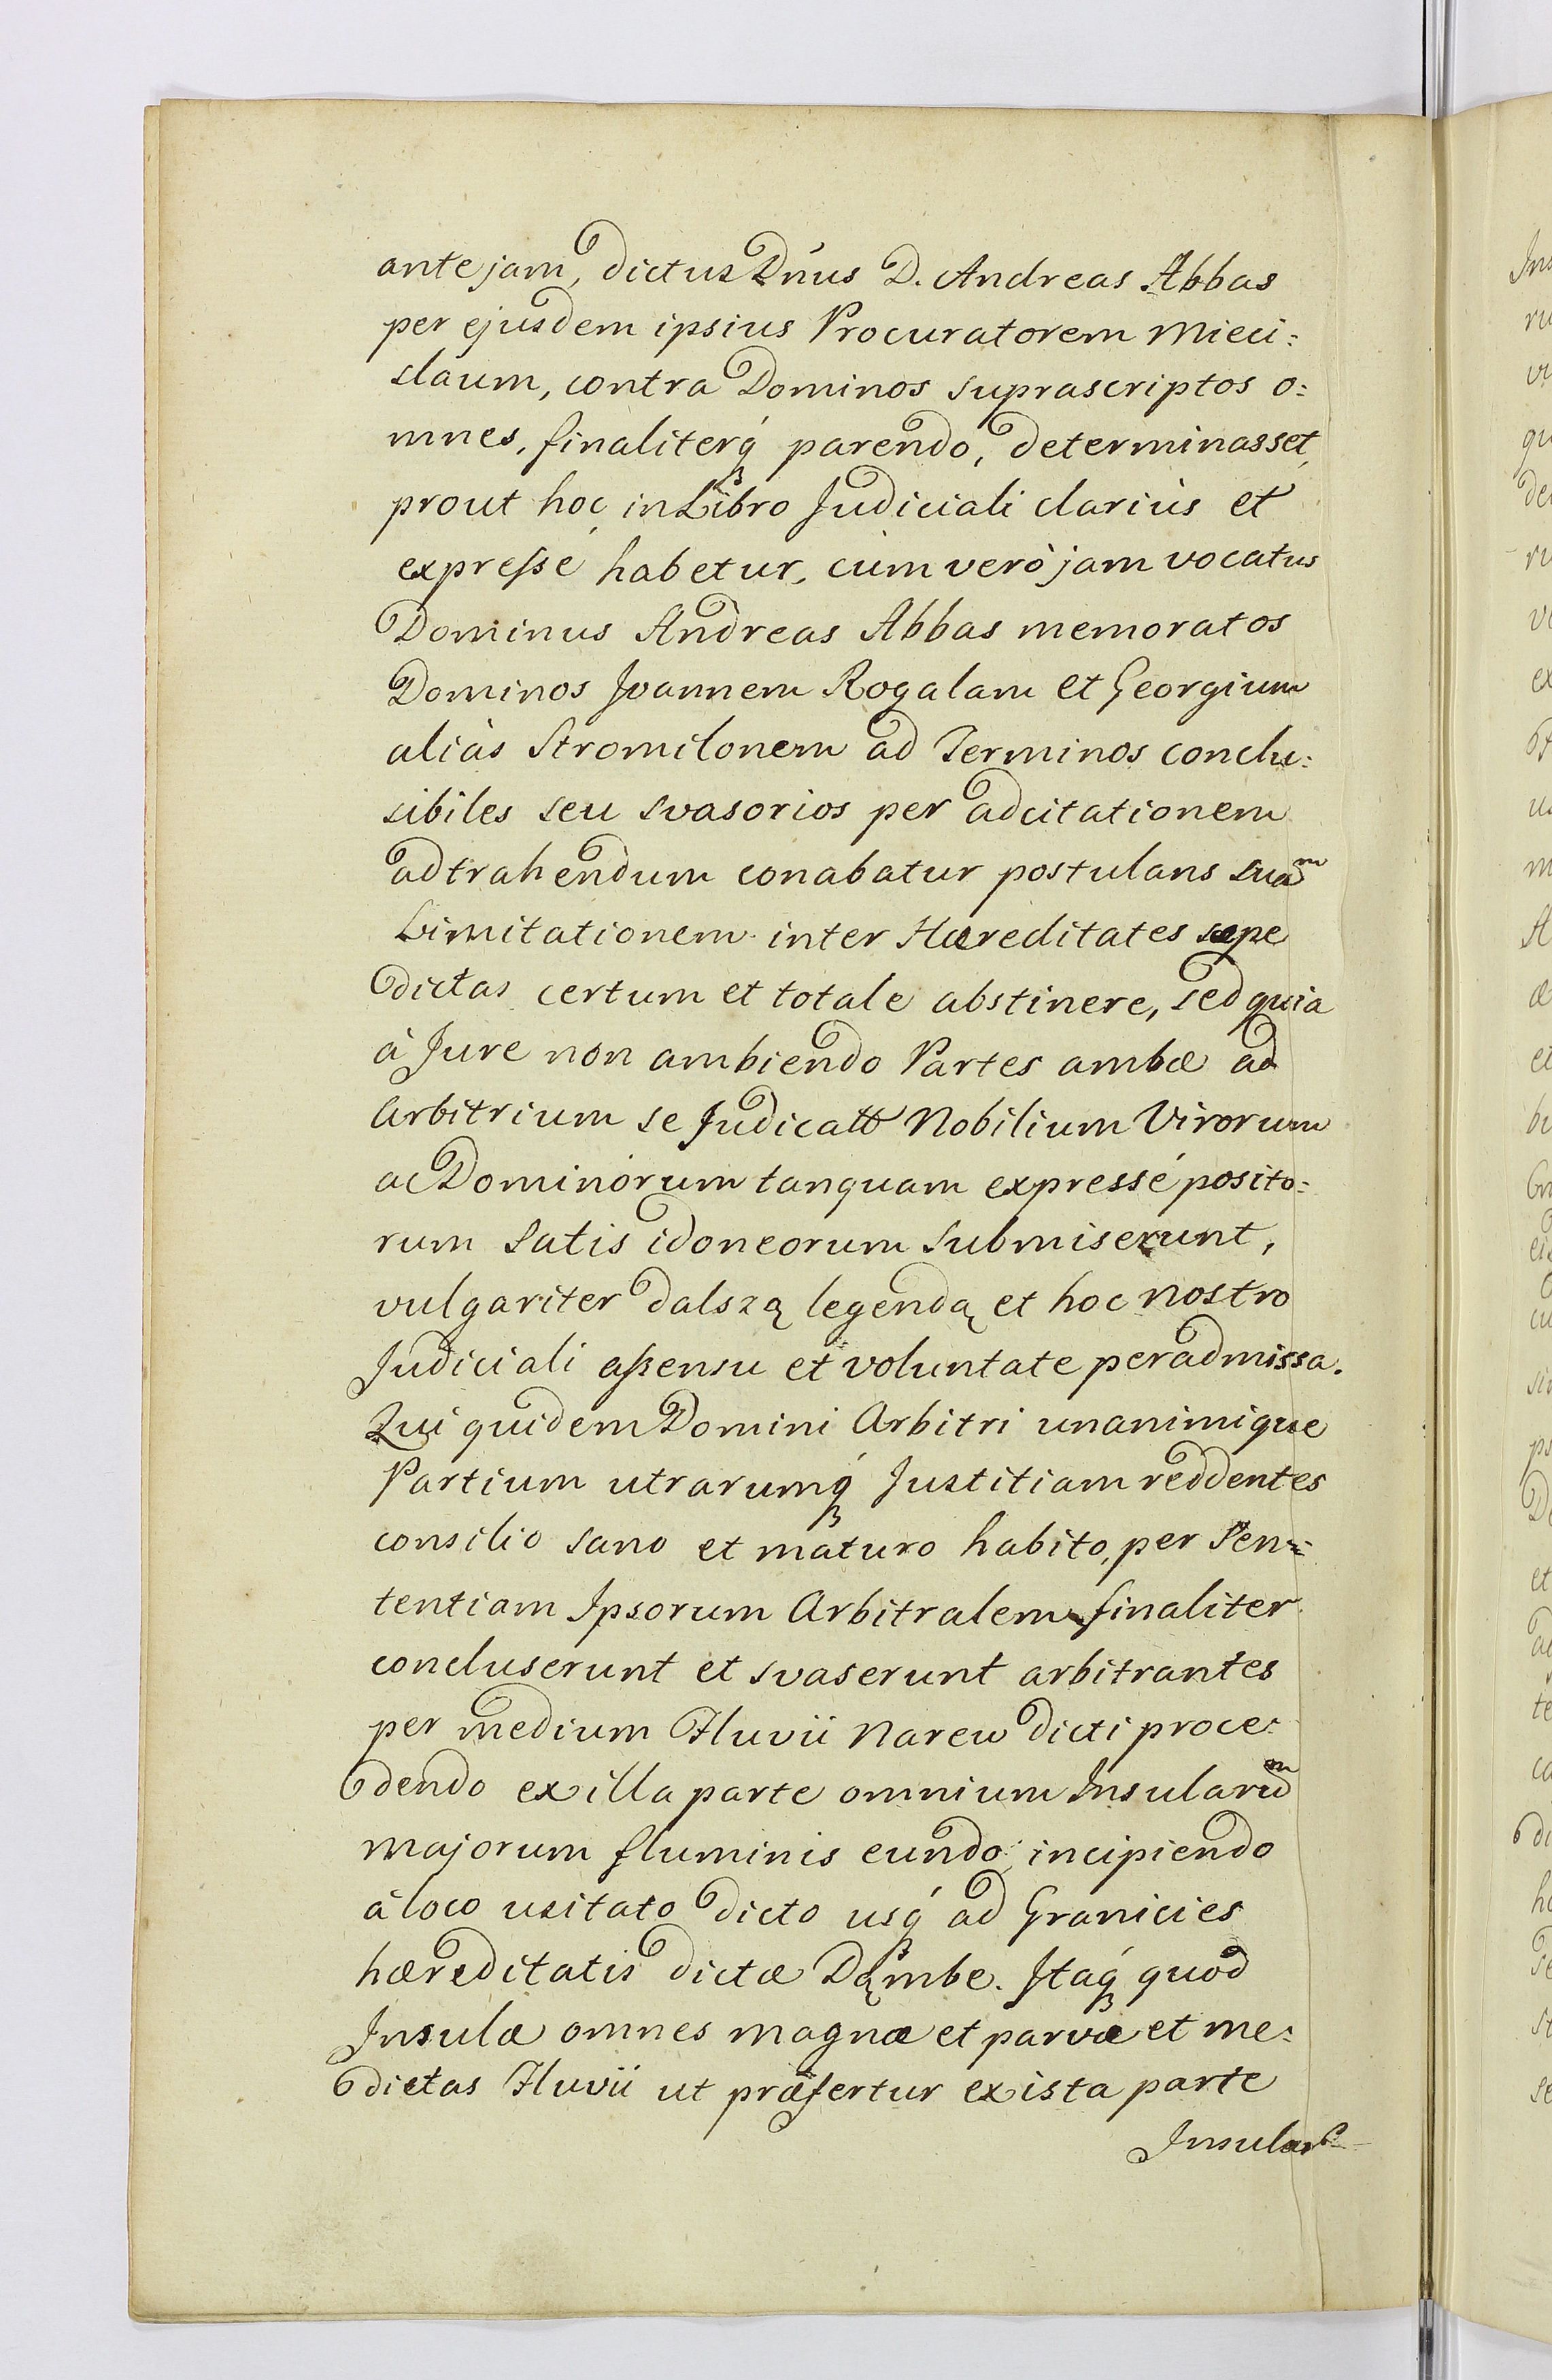 ante jam, dictus Dńus D. Andreas Abbas
per ejusdem ipsius Procuratorem Mieci:
slaum, contra Dominos suprascriptos o:
mnes, finaliterq́ parendo, determinasset,
prout hoc in Libro Judiciali clariùs et
expresse habetur, cùm verò jam vocatus
Dominus Andreas Abbas memoratos
Dominos Joannem Rogalam et Georgium
aliàs Stromilonem ad Terminos conclu:
sibiles seu svasorios per adcitationem
adtrahendum conabatur postulans suaᵐ
Limitationem inter Hæreditates sæpe
dictas certum et totale abstinere, sed quia
à Jure non ambiendo Partes ambæ ad
Arbitrium se Judicatt Nobilium Virorum
ac Dominorum tanquam expressé posito:
rum satis idoneorum submiserunt,
vulgariter dalszą legendą et hoc nostro
Judiciali assensu et voluntate peradmissa.
Qui quidem Domini Arbitri unanimique
Partium utrarumq́ Justitiam reddentes
consilio sano et maturo habito, per Sen:
tentiam Ipsorum Arbitralem finaliter
concluserunt et svaserunt arbitrantes
per medium Fluvii Narew dicti proce:
dendo ex illa parte omnium Insularuᵐ
majorum fluminis eundo incipiendo
à loco usitato dicto usq́ ad Granicies
hæreditatis dictæ Dąmbe. Itaq́ quod
Insulæ omnes magnæ et parvæ et me:
dietas Fluvii ut præfertur ex ista parte